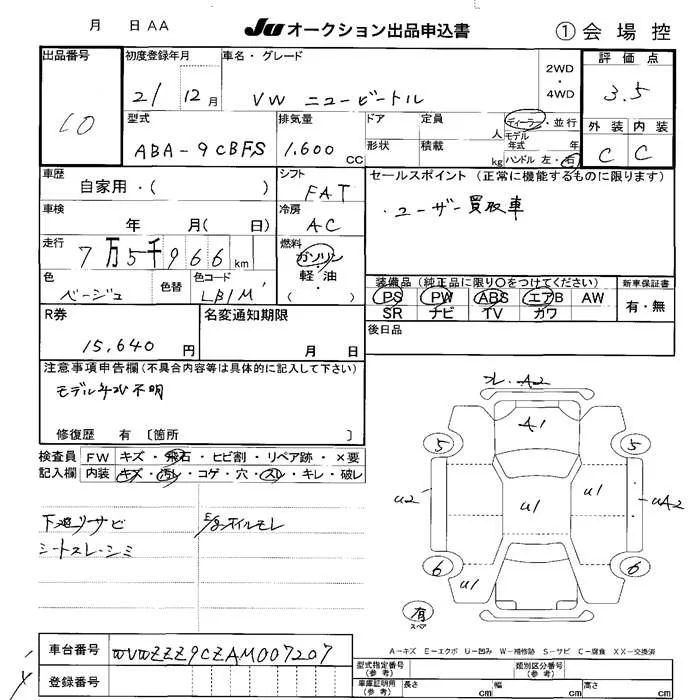 月 日 AA
JU オークション出品申込書
① 会場控
出品番号
10
初度登録年月
21 12月
車名・グレード
VW ニュービートル
2WD
・
4WD
評価点
3.5
型式
ABA-9CBFS
排気量
1,600 CC
ドア
定員
人
形状
積載
kg
ディーラー・並行
モデル
年式 年
ハンドル 左・右
外装 内装
C C
車歴
自家用・( )
シフト
FAT
セールスポイント(正常に機能するものに限ります)
・ユーザー買取車
車検
年 月( 日)
冷房
AC
走行
7万5千966km
燃料
ガソリン
軽・油
( )
色
ベージュ
色替
色コード
LB1M
装備品(純正品に限り○をつけてください)
新車保証書
PS PW ABS エアB AW
SR ナビ TV カワ
有・無
R券
15,640 円
名変通知期限
月 日
後日品
注意事項申告欄(不具合内容等は具体的に記入して下さい)
モデル年式不明
修復歴 有 〔箇所 〕
検査員
記入欄
FW キズ・飛石・ヒビ割・リペア跡・×要
内装 キズ・汚れ・コゲ・穴・スレ・キレ・破レ
下廻リサビ
シートスレ・シミ
E/gオイルモレ
A2
A1
5 5
U2 U1 U1 UA2
6 6
U1
有
スペア
A-キズ E-エクボ U-凹み W-補修跡 S-サビ C-腐食 XX-交換済
車台番号
WVWZZZ9CZAM007207
登録番号
型式指定番号
(参考)
類別区分番号
(参考)
車庫証明用
(参考)
長さ cm 幅 cm 高さ cm